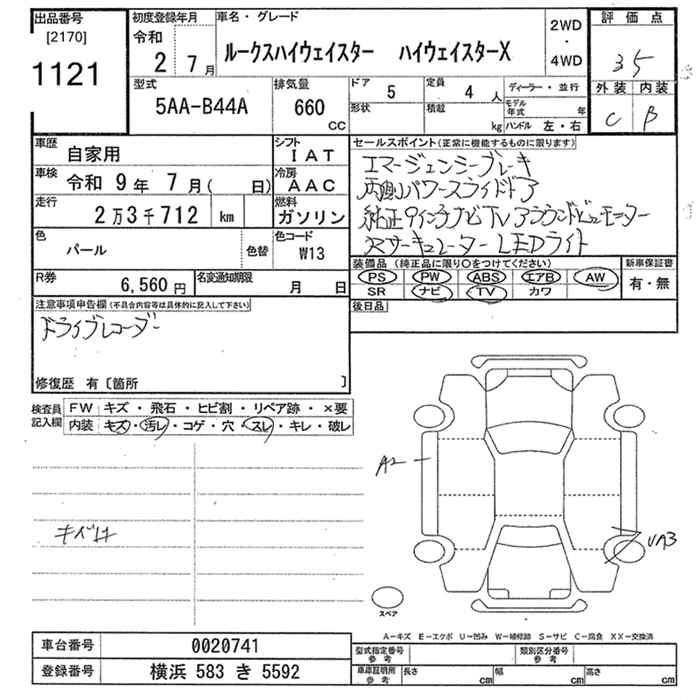 出品番号
[2170]
1121
初度登録年月
令和
2 7月
車名・グレード
ルークスハイウェイスター ハイウェイスターX
2WD
・
4WD
評価点
35
外装 内装
C B
型式
5AA-B44A
排気量
660
CC
ドア
5
定員
4 人
形状
積載
kg
ディーラー・並行
モデル年式 年
ハンドル 左・右
車歴
自家用
シフト
IAT
車検
令和 9年 7月( 日)
冷房
AAC
走行
2万3千712 km
燃料
ガソリン
色
パール
色替
色コード
W13
R券
6,560 円
名変通知期限
月 日
セールスポイント(正常に機能するものに限ります)
エマージェンシーブレーキ
両側パワースライドドア
純正9インチナビTVアラウンドビューモニター
サーキュレーター LEDライト
装備品 (純正品に限り○をつけてください)
PS PW ABS エアB AW
SR ナビ TV カワ
新車保証書
有・無
後日品
注意事項申告欄(不具合内容等は具体的に記入して下さい)
ドライブレコーダー
修復歴 有〔箇所 〕
検査員記入欄
FW キズ・飛石・ヒビ割・リペア跡・×要
内装 キズ・汚レ・コゲ・穴・スレ・キレ・破レ
A2
UA3
スペア
A-キズ E-エクボ U-凹み W-補修跡 S-サビ C-腐食 XX-交換済
車台番号 0020741
登録番号 横浜 583 き 5592
型式指定番号
参考
類別区分番号
参考
車庫証明用
参考
長さ cm 幅 cm 高さ cm